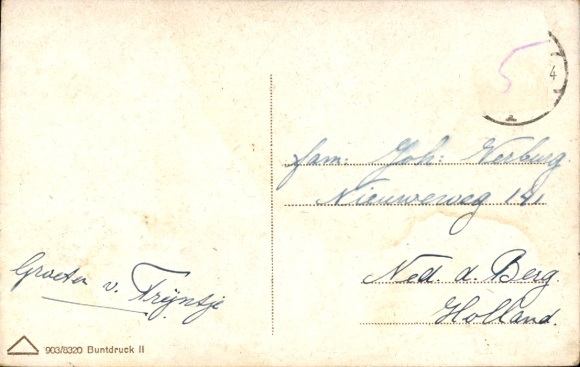 Groeten v. Trÿntje
903/8320 Buntdruck II
5
4
fam: Joh: Verburg.
Nieuweweg 141
Ned. d. Berg
Holland.